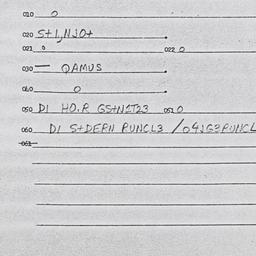 010 0
020 S+1,NJO+ .
021 0 022 0
030 — QAMUS .
040 0 .
050 DI HO.R GS+NST23 051 0
060 DI S+DERN RUNCL3 / 04JG3RUNCL
061